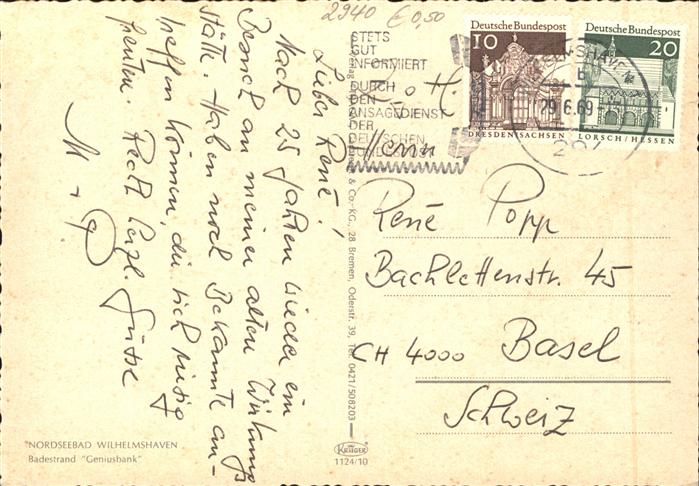 2940 € 0,50
STETS
GUT
INFORMIERT
DURCH
DEN
ANSAGEDIENST
DER
DEUTSCHEN
BUNDESPOST
Deutsche Bundespost
10
DRESDEN/SACHSEN
Deutsche Bundespost
20
LORSCH/HESSEN
29.6.69
Lieber René!
Nach 25 Jahren wieder ein
Besuch an meiner alten Wirkungs
stätte. Haben noch Bekannte an-
treffen können, die sich riesig
freuten. Recht herzl. Grüsse
M +
Herrn
René Popp
Bachlettenstr. 45
CH 4000 Basel
Schweiz
& Co.-KG, 28 Bremen, Oderstr. 39, Tel. 0421/508203
KRÜGER
1124/10
"NORDSEEBAD WILHELMSHAVEN
Badestrand "Geniusbank"